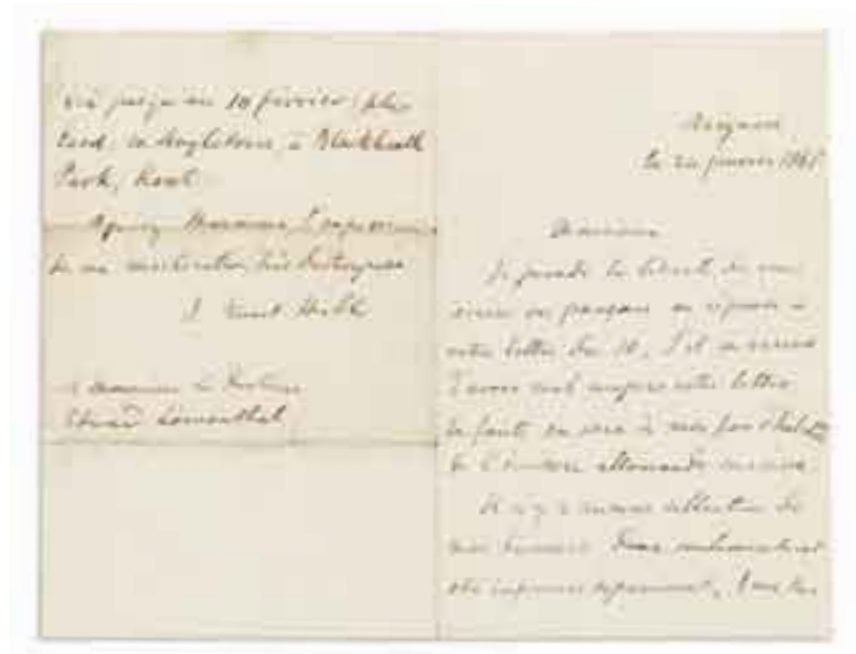 ici jusqu'au 10 février, plus
tard, en Angleterre, à Blackheath
Park, Kent.
Agréez Monsieur l'expression
de ma considération très distinguée
J. Stuart Mill
à Monsieur le Docteur
Eduard Löwenthal
Avignon
le janvier
Monsieur
Je prends la liberté de vous
écrire en français en réponse à
votre lettre du 10. S'il m'arrive
d'avoir mal compris votre lettre
la faute en sera à mon peu d'habitude
de l'écriture allemande cursive.
Il n'y a aucune collection de
mes discours. Deux seulement ont
été imprimés séparément,